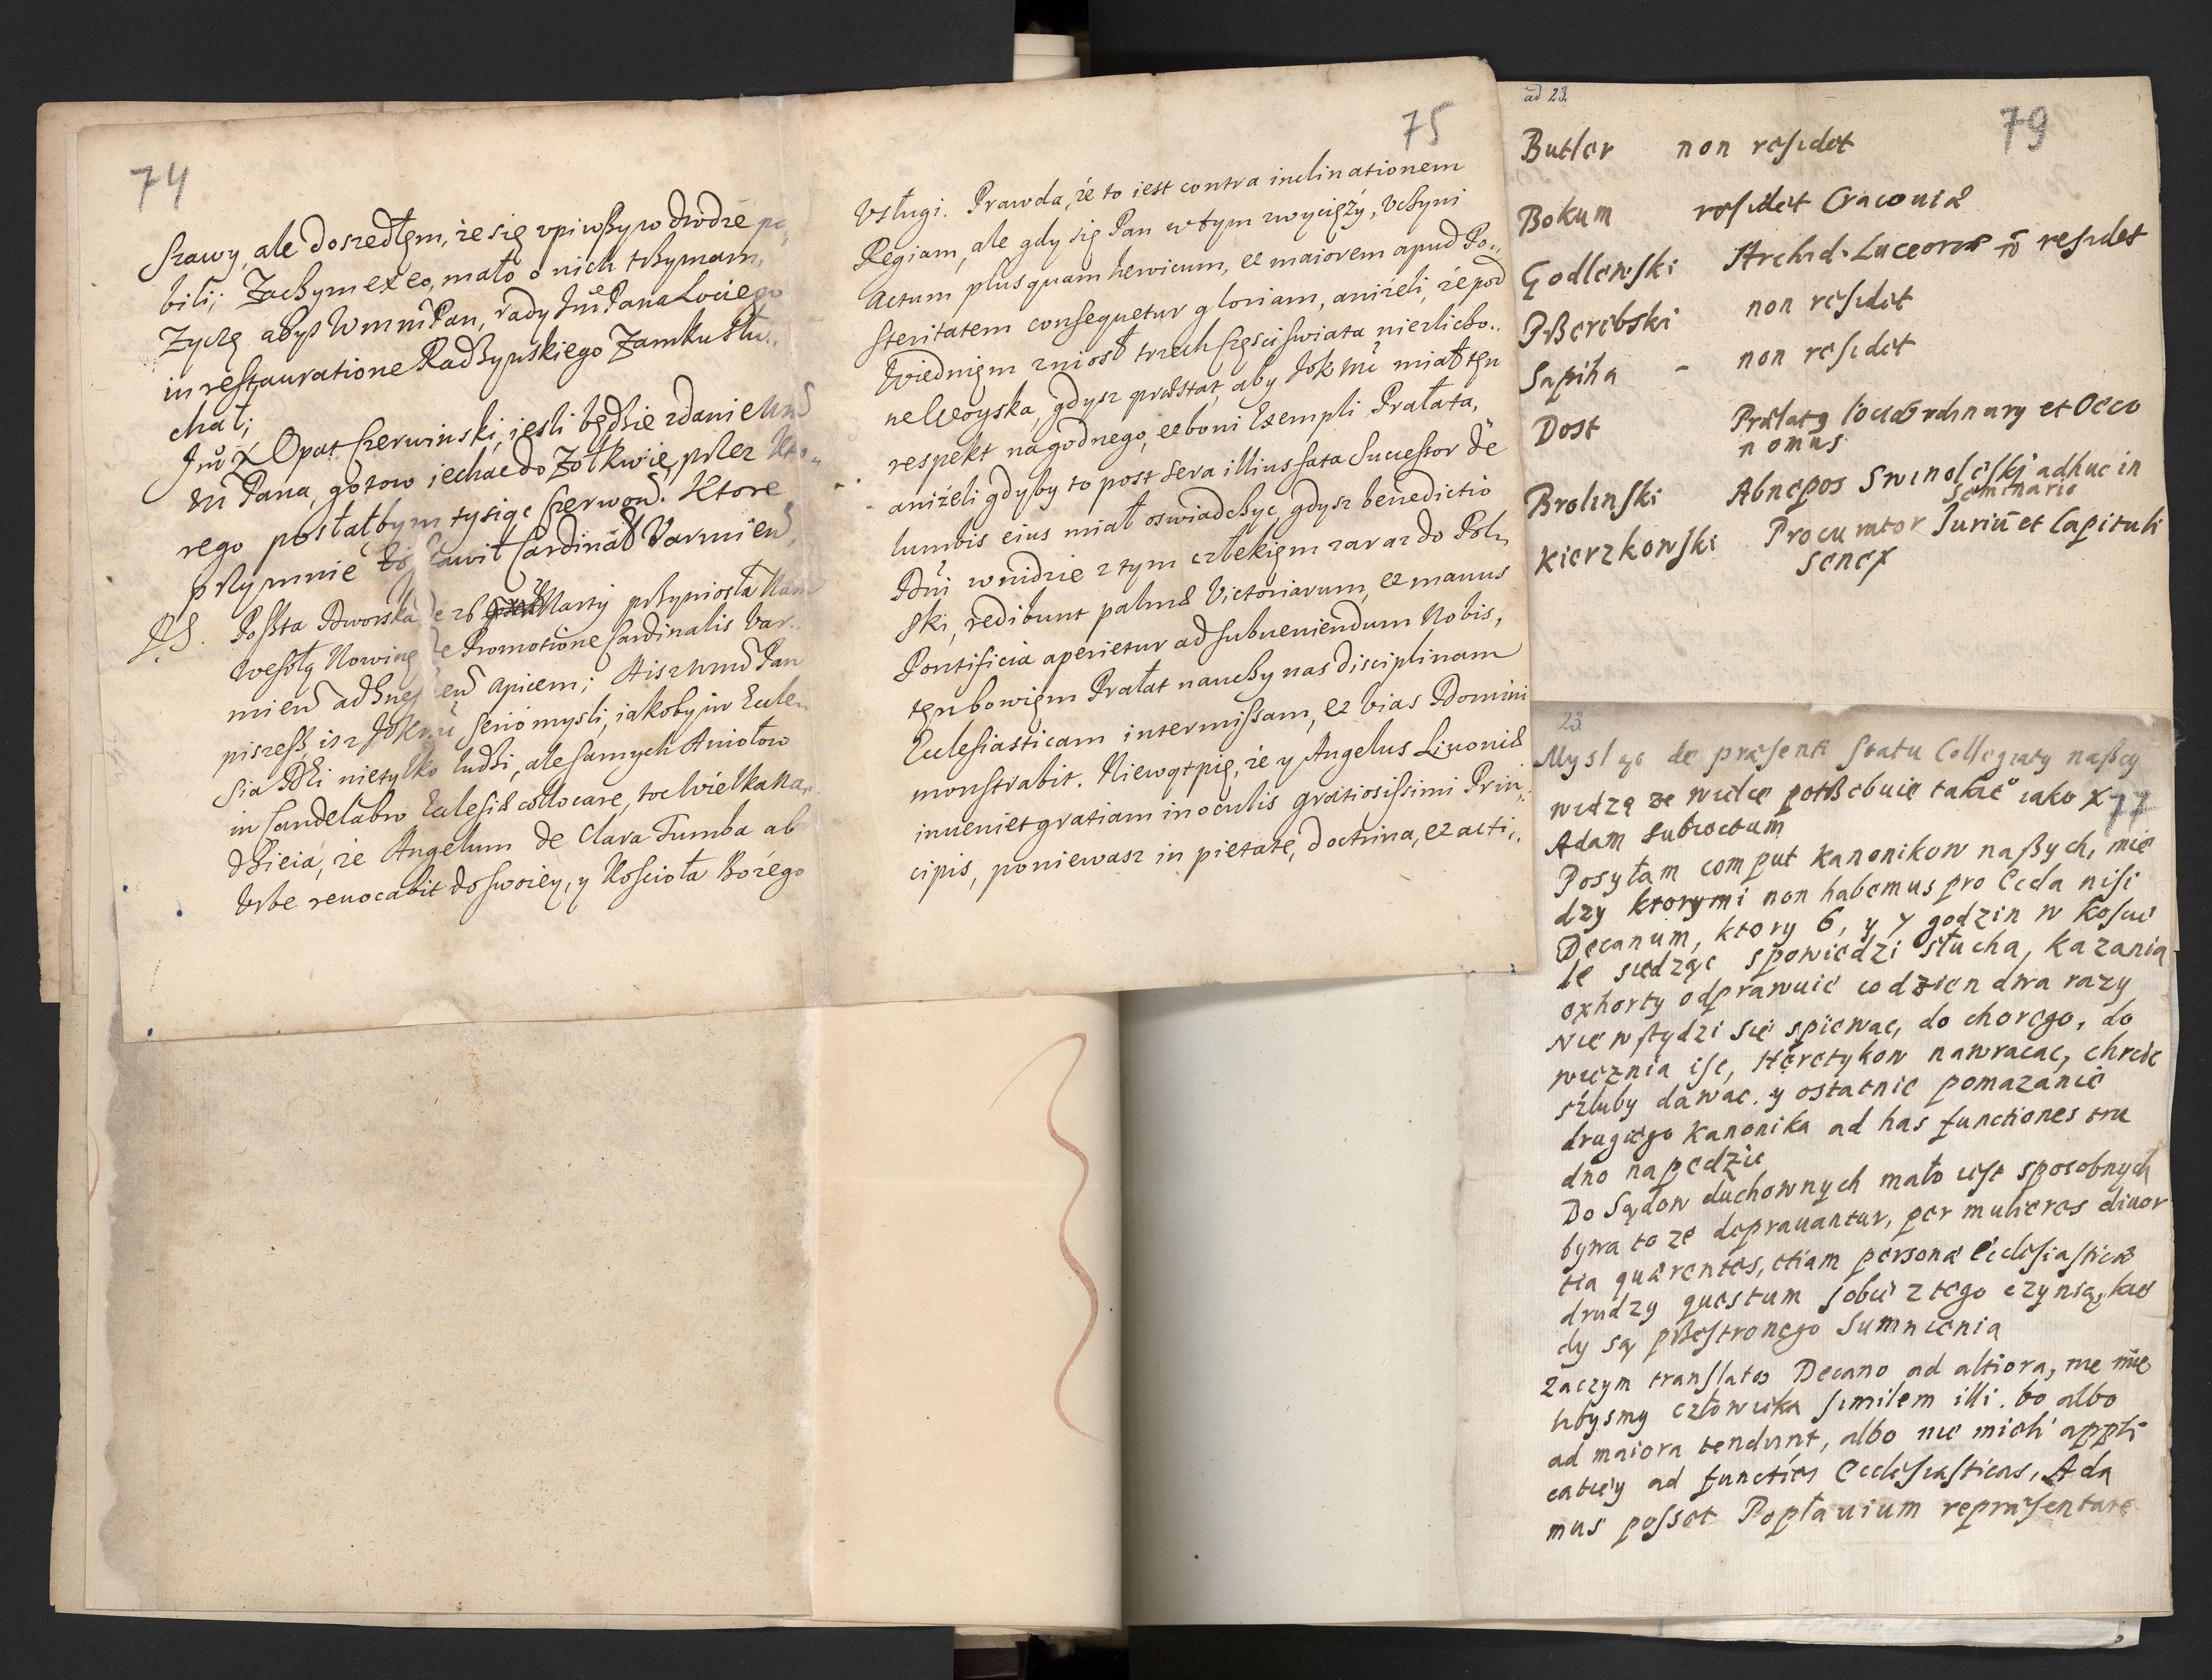 74
szawy, ale doszedłęm, że się vpiwszy w drodze po„
bili; Zaczym ex eo, mało o nich trzymam,
Zyczę abys WmM Pan, rady Jm̃ Pana Łosiego
in restauratione Radzynskiego Zamku słu„
chał;
Jm̃ X Opat Czerwinski, iesli będzie zdanie
Pana, gotow iechac do Zołkwie, przez kto„
rego posłałbym tysiąc czerwon. Ktore
przymnie zostawił Cardinał Varmien,
PS. Poszta Dworska de 26 Marty przyniosła Nam
wesołą Nowinę de Promotione Cardinalis Var„
mien ad apicem; A isz WmM Pan
piszesz, isz JoKM serio mysli, iakoby in Eccle„
sia Dei nietylko ludzi, ale samych Aniołow
in candelabro Ecclesiæ collocare, toc Wielka na„
dzieia, że Angelum de Clara Tumba ab
Vrbe reuocabit do swoiey, y Koscioła Bożego
75
Vsługi. Prawda, że to iest contra inclinationem
Regiam, ale gdy się Pan w tym zwycięży, vczyni
Actum plusquam heroicum, et maiorem apud Po„
steritatem consequetur gloriam, aniżeli, że pod
Wiedniem zniosł trzech częsci swiata niezliczo„
ne Woyska, gdysz præstat, aby JoKMc miał ten
respekt na godnego, et boni Exempli Prałata,
aniżeli gdyby to post sera illius fata Successor de
lumbis eius miał oswiadczyc, gdysz benedictio
Dni wnidzie z tym człekiem zaraz do Pol„
ski, redibunt palmæ Victoriarum, et manus
Pontificia aperietur ad subueniendum Nobis,
ten bowiem Prałat nauczy nas disciplinam
Ecclesiasticam intermissam, et vias Domini
monstrabit. Niewątpię, że y Angelus Liuoniæ
inueniet gratiam in oculis gratiosissimi Prin„
cipis, poniewasz in pietate, doctrina, et acti„
ad 23.
79
Butler non residet
Bokum residet Cracouiæ
Godlewski Archid. Luceoriæ nō residet
Pszerębski non residet
Sapiha - non residet
Dost Prælatg loci Ordinary et Oeco
nomus
Brolinski Abnepos Swinolęski adhuc in
Seminario
Kierzkowski Procurator Juriū et Capituli
Senex
23
Mysląc de præsenti statu Collegiaty naszey
widzą ze wielce potrzebuie takāc iako X
77
Adam subiectum
Posyłam comput kanonikow naszych, mie
dzy ktorymi non habemus pro Ecclā nisi
Decanum, ktory 6, y 7 godzin w Koscie
le siedząc spowiedzi słucha, kazania
exhorty odprawuie codzien dwa razy
nie wstydzi sie spiewac, do chorego, do
więznia isc, Heretykow nawracac, chrcic
szluby dawac. y ostatnie pomazanie
drugiego kanonika ad has functiones tru
dno napedzic
Do Sądow duchownych mało iest sposobnych
bywa to ze deprauantur, per mulieres diuor
tia quærentes, etiam personæ Ecclesiasticæ
drudzy questum sobie z tego czynią, kie
dy są przestronego Sumnienia
Zaczym translato Decano ad altiora, nie mie
libysmy człowieka similem illi. bo albo
ad maiora tendunt, albo nie mieli appli
catiey ad functies Ecclesiasticas, Ada
mus posset Popłauium repræsentare